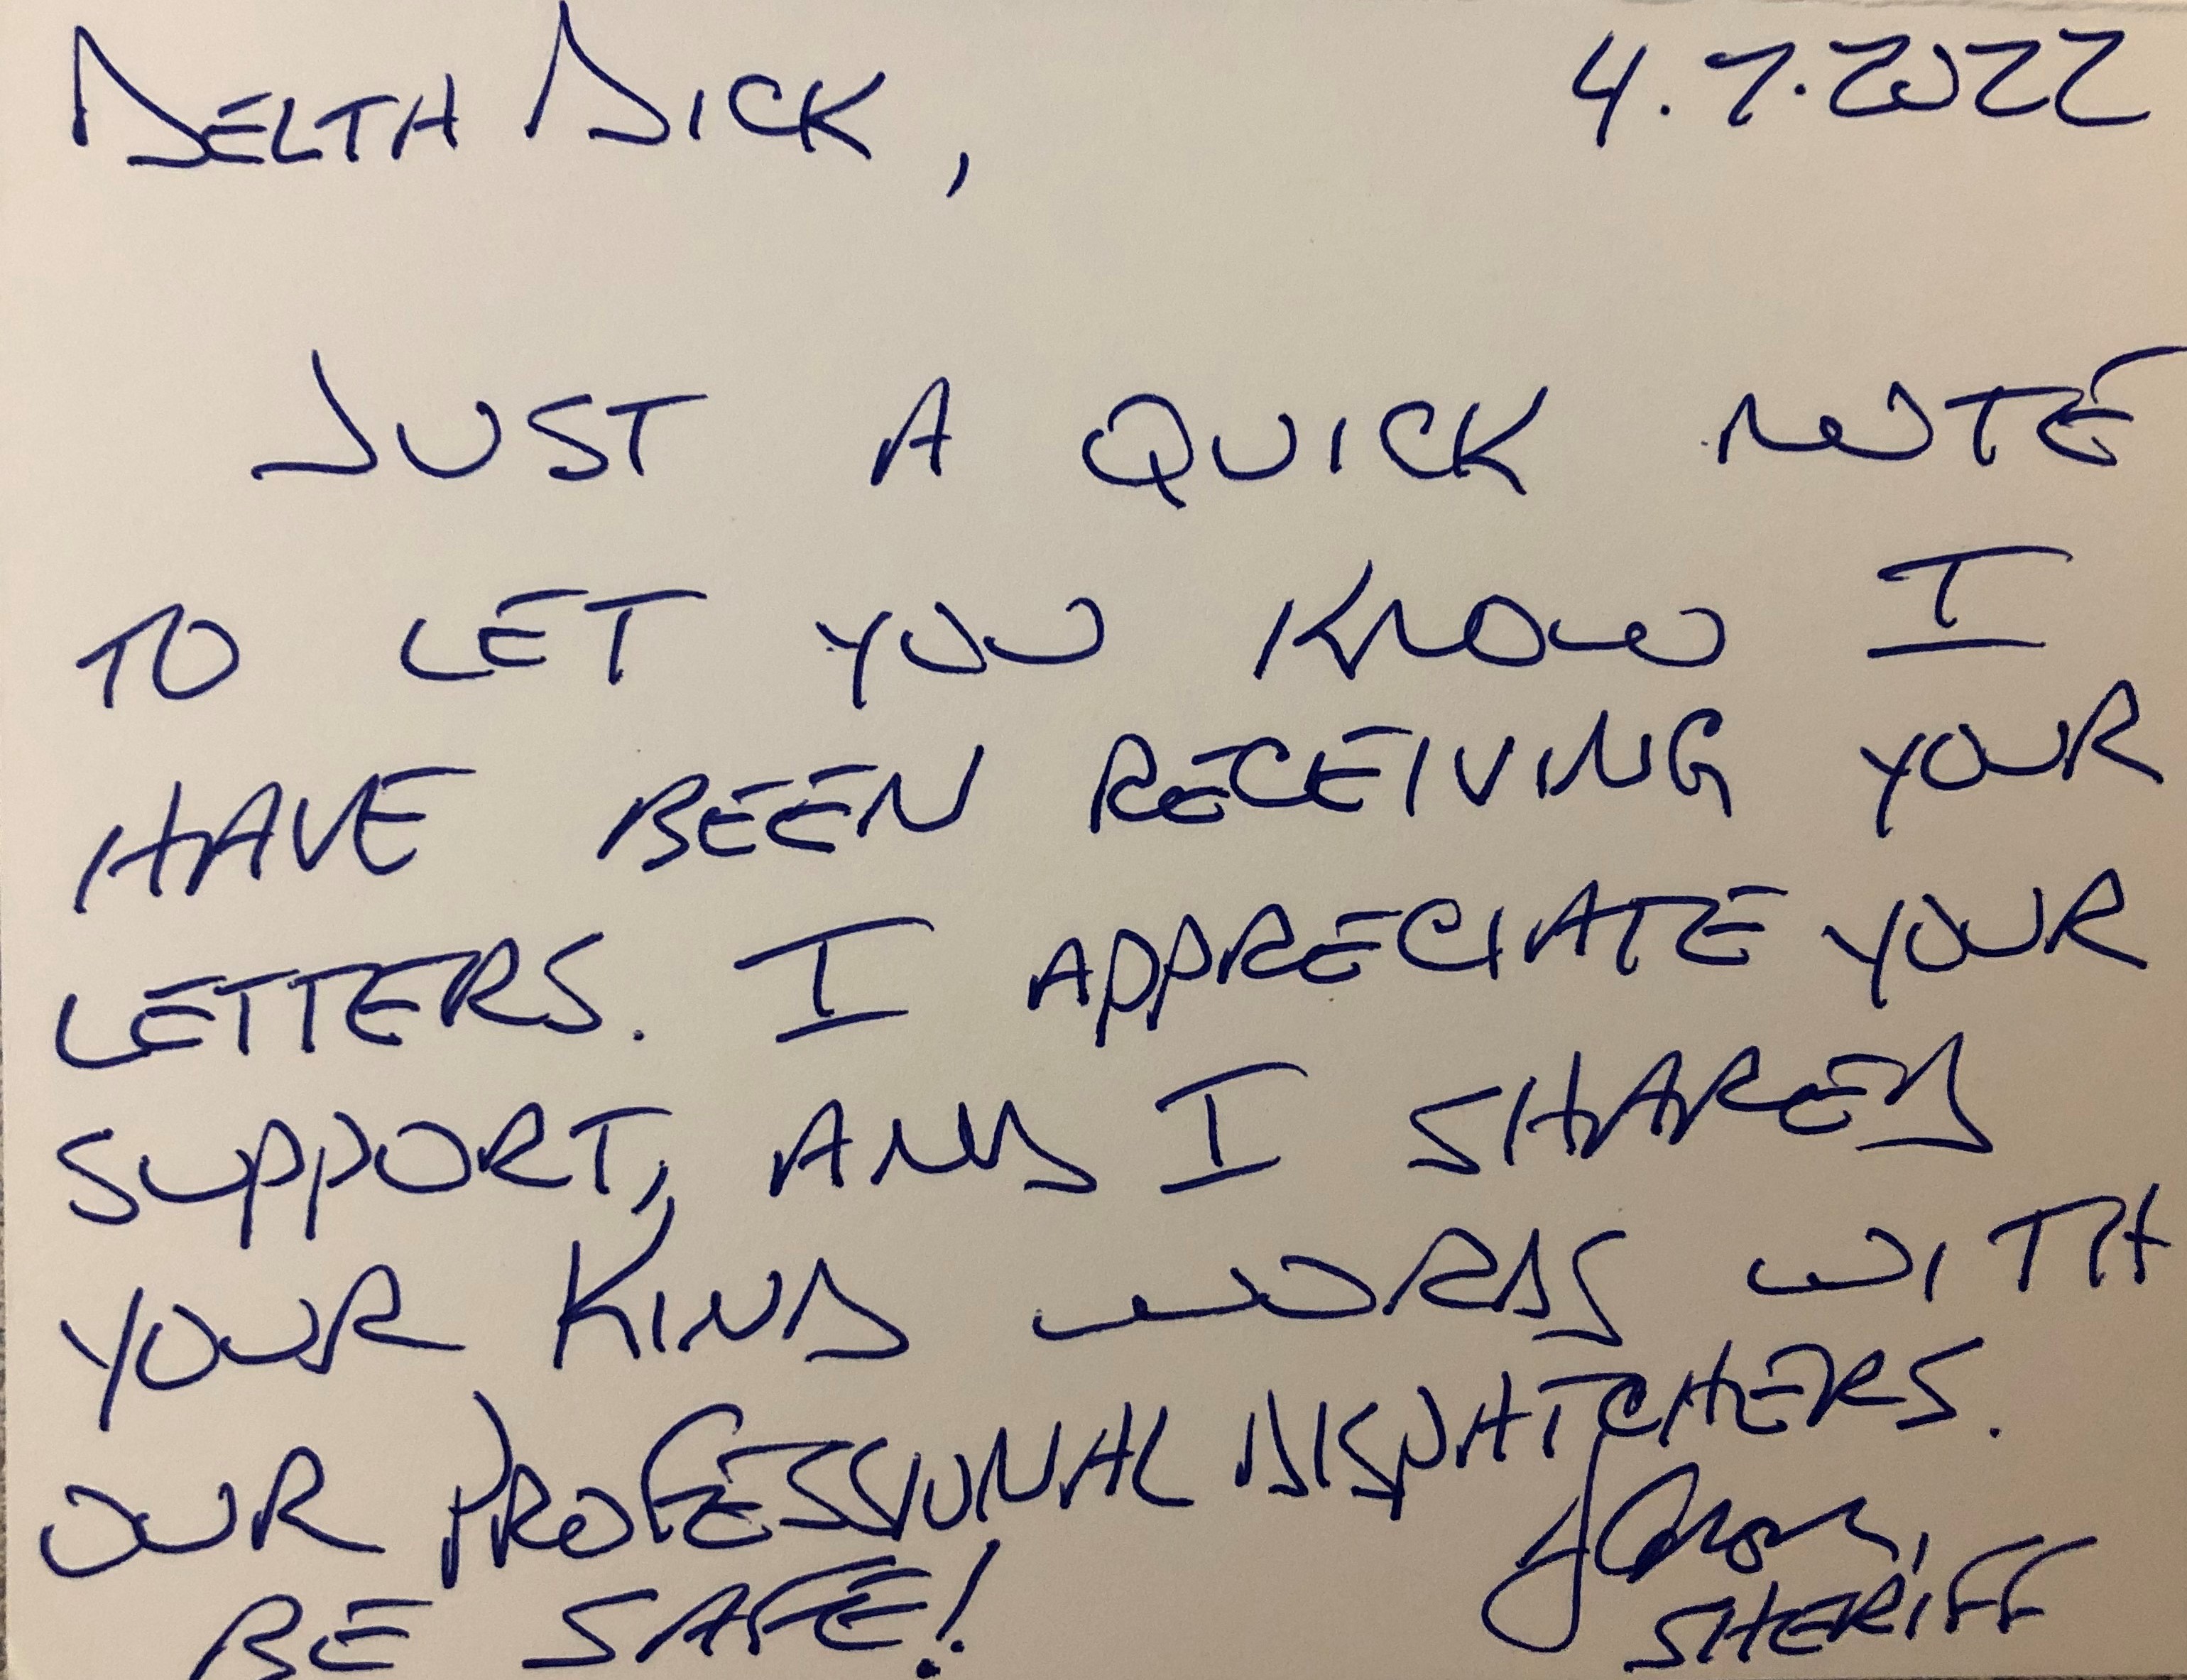 DELTA DICK, 4.7.2022
JUST A QUICK NOTE
TO LET YOU KNOW I
HAVE BEEN RECEIVING YOUR
LETTERS. I APPRECIATE YOUR
SUPPORT, AND I SHARED
YOUR KIND WORDS WITH
OUR PROFESSIONAL DISPATCHERS.
BE SAFE!
SHERIFF